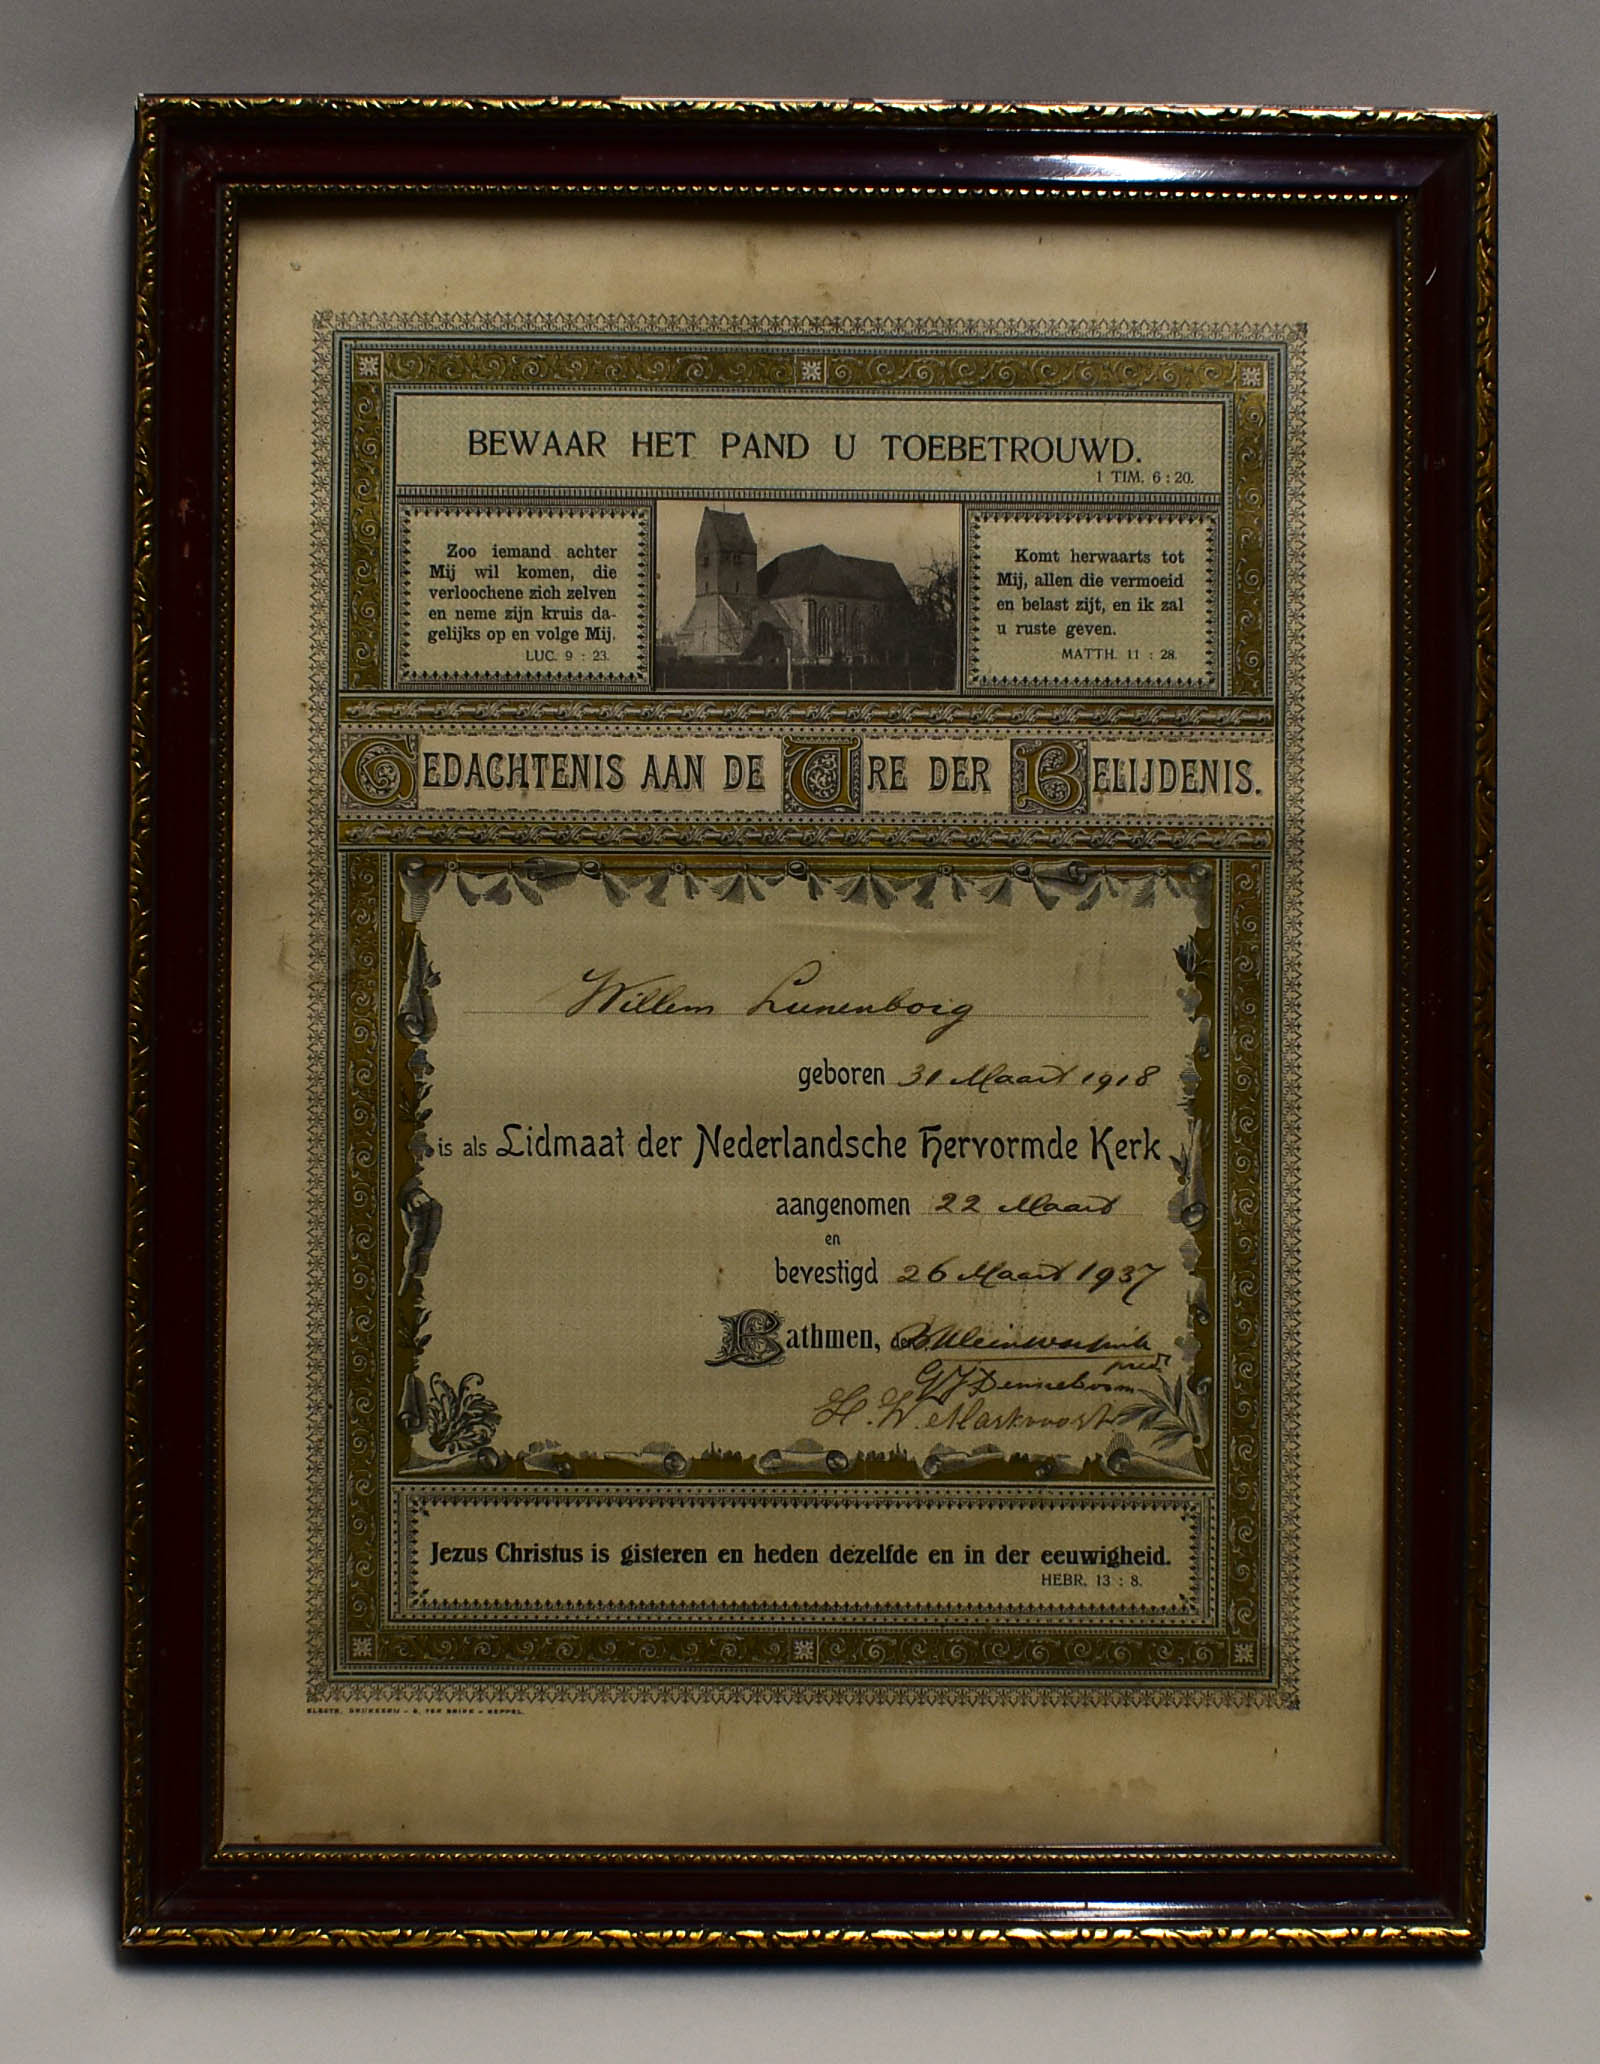 BEWAAR HET PAND U TOEBETROUWD.
1 TIM. 6 : 20.
Zoo iemand achter
Mij wil komen, die
verloochene zich zelven
en neme zijn kruis da-
gelijks op en volge Mij.
LUC. 9 : 23.
Komt herwaarts tot
Mij, allen die vermoeid
en belast zijt, en ik zal
u ruste geven.
MATTH. 11 : 28.
GEDACHTENIS AAN DE URE DER BELIJDENIS.
Willem Lunenborg
geboren 31 Maart 1918
is als Lidmaat der Nederlandsche Hervormde Kerk
aangenomen 22 Maart
en
bevestigd 26 Maart 1937
Bathmen, den
pred.
G J Denneboom
H. W. Markvoort
Jezus Christus is gisteren en heden dezelfde en in der eeuwigheid.
HEBR. 13 : 8.
ELECTR. DRUKKERIJ - R. TEN BRINK - MEPPEL.